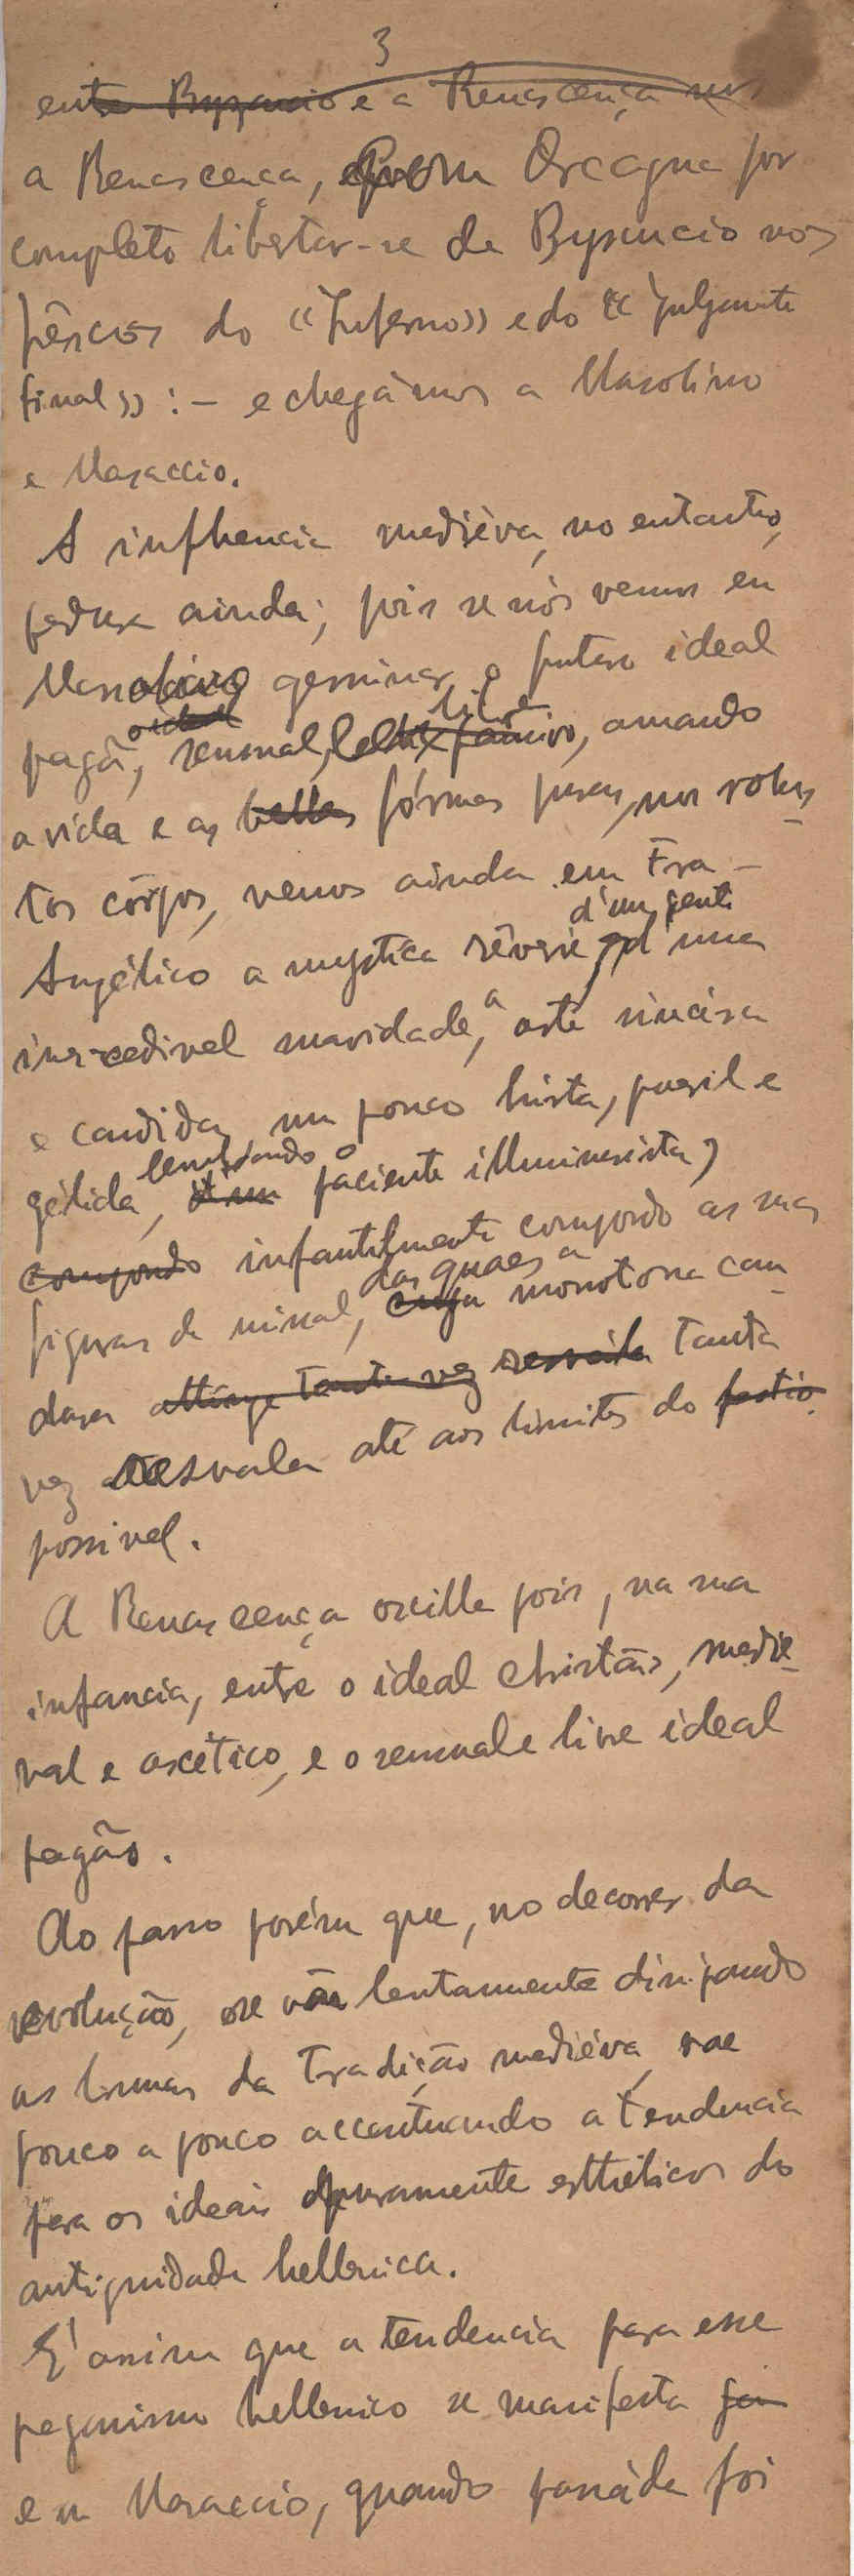 3
entre Byzancio e a Renascença nos
a Renascença, Orcagna por
completo libertar-se de Bysancio nos
frêscos do «Inferno» e do «Julgamento
final»: – e chegâmos a Masolino
e Masaccio.
A influencia mediéva, no entanto,
perdura ainda; pois se nós vemos em
Masolino germinar o futuro ideal
pagão, sensual, livre, amando
a vida e as bellas fórmas puras, nos robus-
tos córpos, vemos ainda em Fra –
d'um gento
Angélico a mystica rêverie d'uma
incredivel suavidade, a arte sincéra
e candida, um pouco hirta, pueril e
lembrando o
gélida, d'um paciente illuminurista,
compondo infantilmente compondo as suas
das quaes a
figuras de missal, cuja monotona can-
dura attinge tanta vez resvála tanta
vez resvala até aos limites do fastio.
possivel.
A Renascença oscilla pois, na sua
infancia, entre o ideal christão, medie-
val e ascético, e o sensual e livre ideal
pagão.
Ao passo porém que, no decorrer da
evolução, se vão lentamente dissipando
as brumas da tradição mediéva, vae
pouco a pouco accentuando a tendencia
para os ideais puramente esthéticos da
antiguidade hellenica.
É assim que a tendencia para esse
paganismo hellenico se manifesta já
em Masaccio, quando passáda foi